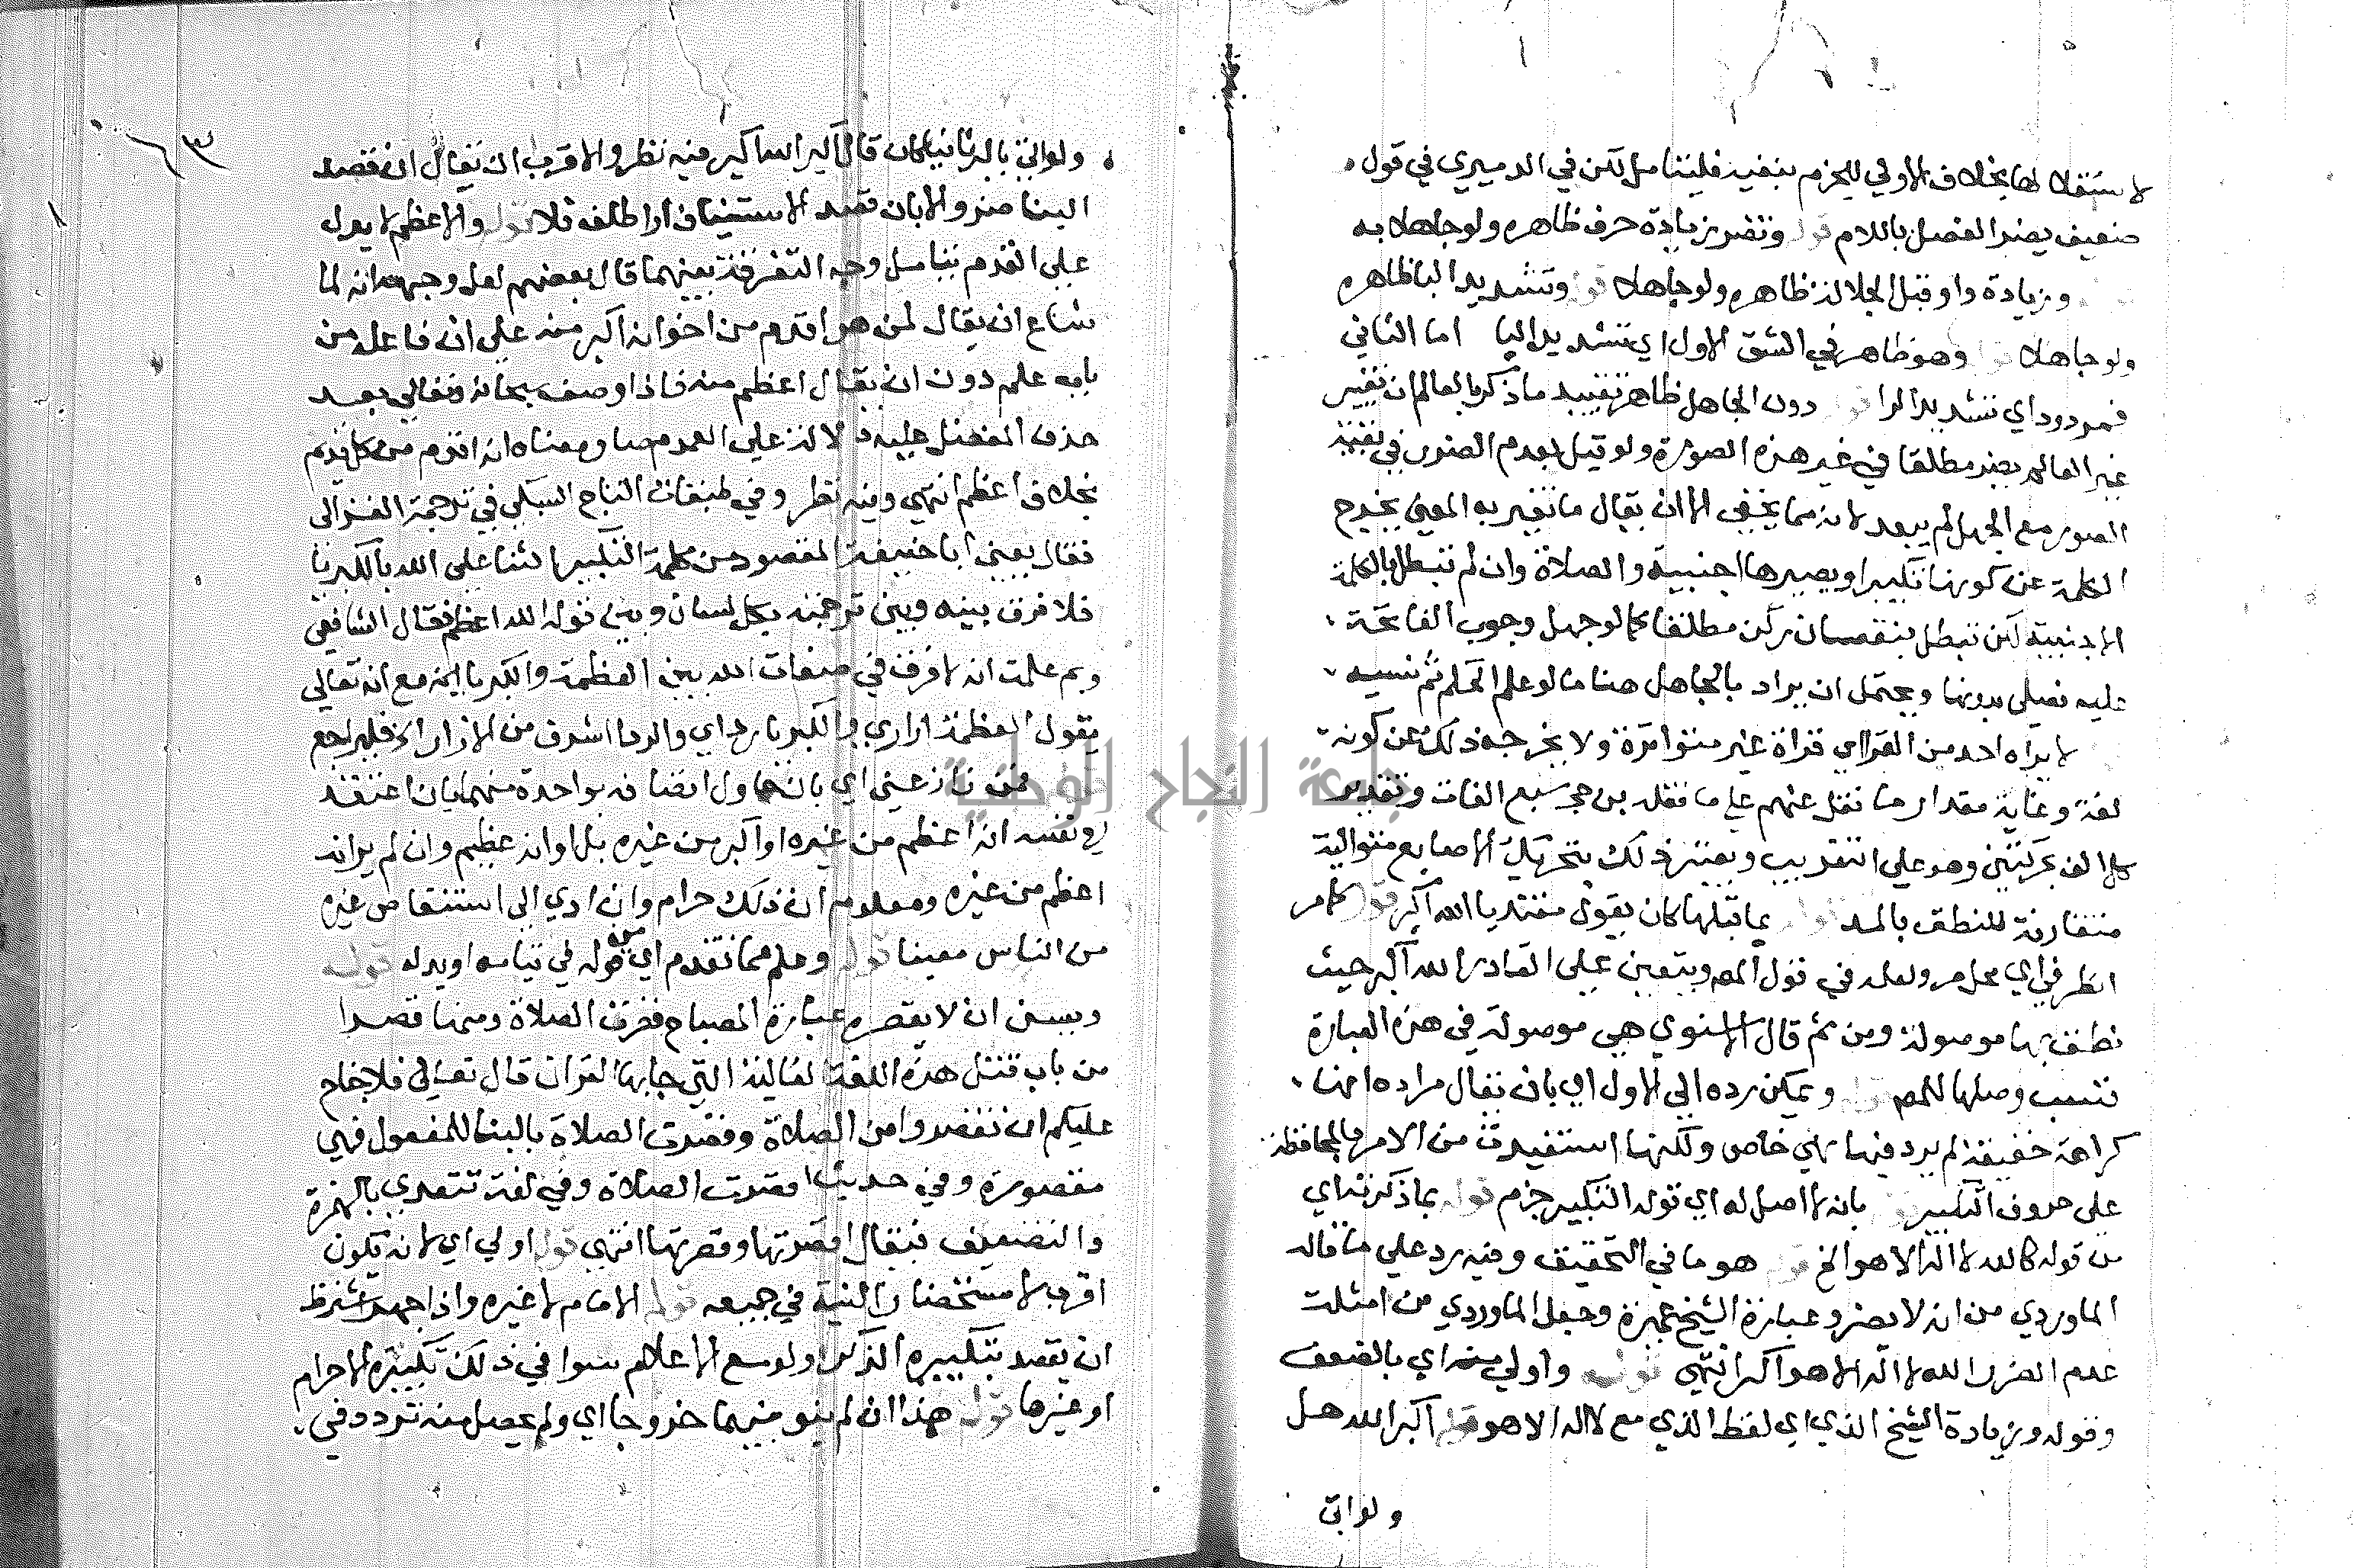 لاستقلالها بخلاف الاولي للجزم بنفيه فليتامل لكن في الدميري في قول
ضعيف يضر الفصل باللام قوله وتضر زيادة حرف ظاهره ولو جاهلا به
وزيادة واو قبل الجلالة ظاهره ولو جاهلا قوله وتشديد البا ظاهره
ولو جاهلا قوله وهو ظاهر في الشق الاول اي تشديد البا اما الثاني
فمردود اي تشديد الرا قوله دون الجاهل ظاهر تقييد ما ذكر بالعالم ان تغيير
غير العالم يضر مطلقا في غير هذه الصورة ولو قيل بعدم الضرر في بقية
الصور مع الجهل لم يبعد لانه مما يخفي الا ان يقال ما تغير به المعني يخرج
الكلمة عن كونها تكبيرا ويصيرها اجنبية والصلاة وان لم تبطل بالكلمة
الاجنبية لكن تبطل بنقصان ركن مطلقا كما لو جهل وجوب الفاتحة
عليه فصلي بدونها ويحتمل ان يراد بالجاهل هنا ما لو علم الحكم ثم نسيه
لا يراه احد من القرا اي قراة غير متواترة ولا يخرجه ذلك عن كونه
لغة وغاية مقدار ما نقل عنهم علي ما نقله بن حجر سبع الفات وتقدير
كل الف بحركتين وهو علي التقريب ويعتبر ذلك بتحريك الاصابع متوالية
متقارنة للنطق بالمد قوله بما قبلها كان يقول مقتديا الله اكبر قوله كما مر
انظر في اي محل مر ولعله في قول المص ويتعين علي القادر الله اكبر حيث
نطق بها موصولة ومن ثم قال الاسنوي هي موصولة في هذه العبارة
فنسب وصلها للمص قوله ويمكن رده الي الاول اي بان يقال مراده انها
كراهة خفيفة لم يرد فيها نهي خاص ولكنها استفيدت من الامر بالمحافظة
علي حروف التكبير قوله بانه لا اصل له اي قوله التكبير جزم قوله بما ذكرته اي
من قوله كالله لا اله الا هو الخ قوله هو ما في التحقيق وفيه رد علي ما قاله
الماوردي من انه لا يضر وعبارة الشيخ عميرة وجعل الماوردي من امثلت
عدم الضرر الله لا اله الا هو اكبر انتهي قوله واولي منه اي بالضعف
وقوله وزيادة الشيخ الذي اي لفظ الذي مع لا اله الا هو قوله اكبر الله هل
ولو اتي
ولو اتي بالبر ثانيا كان قال اكبر الله اكبر فيه نظر والاقرب ان يقال ان قصد
البنا ضر والا بان قصد الاستيناف او اطلق فلا قوله والاعظم لا يدل
علي القدم يتامل وجه التفرقة بينهما قال بعضهم لعل وجهه انه لما
شاع ان يقال لمن هو اقدم من اخوانه اكبر منه علي ان فاعله من
بابه علم دون ان يقال اعظم منه فاذا وصف سبحانه وتعالي بعد
حذف المفضل عليه دلالة علي العموم صا ومعناه انه اقدم من كل قديم
بخلاف اعظم انتهي وفيه نظر وفي طبقات التاج السبكي في ترجمة الغزالي
فقال يعني ابا حنيفة المقصود من كلمة التكبير الثنا علي الله بالكبريا
فلا فرق بينه وبين ترجمته بكل لسان وبين قوله الله اعظم فقال الشافعي
وبم علمت انه لا فرق في صفات الله بين العظمة والكبريا الخ مع انه تعالي
يقول العظمة ازاري والكبريا رداي والردا اشرف من الازار الخ فليراجع
فمن نازعني اي بان حاول اتصافه بواحدة منهما بان اعتقد
في نفسه انه اعظم من غيره او اكبر من غيره بل او انه عظيم وان لم يرانه
اعظم من غيره ومعلوم ان ذلك حرام وان ادي الي استنقاص غيره
من الناس معينا قوله وعلم مما تقدم اي من قوله في قيامه او بدله قوله
ويسن ان لا يقصره عبارة المصباح وقصرت الصلاة ومنها قصرا
من باب قتل هذه اللغة العالية التي جا بها القران قال تعالي فلا جناح
عليكم ان تقصروا من الصلاة وقصرت الصلاة بالبنا للمفعول فهي
مقصورة وفي حديث اقصرت الصلاة وفي لغة تتعدي بالهمزة
والتضعيف فيقال اقصرتها وقصرتها انتهي قوله اولي اي لانه تكون
اقرب لاستحضار النية في جميعه قوله الامام لا غيره واذا جهر شرط
ان يقصد بتكبيره الذكر ولو مع الاعلام سوا في ذلك تكبيرة الاحرام
او غيرها قوله هذا ان لم ينو بينهما خروجا اي ولم يحصل منه تردد في